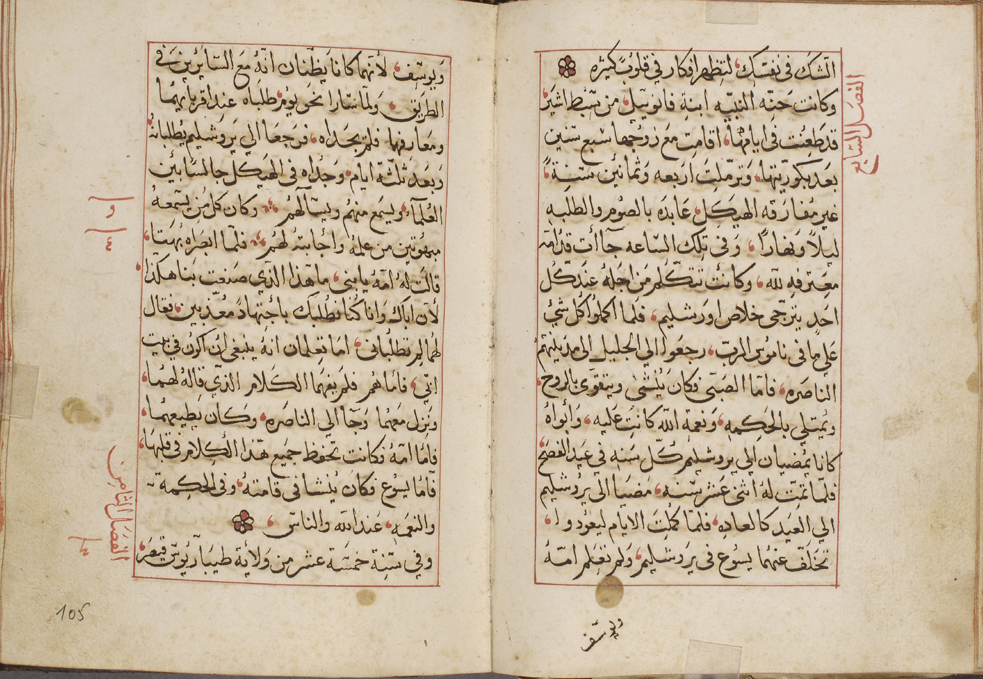 الشك في نفسك لتظهر افكار في قلوب كثيره
وكانت حنه النبيه ابنة فانوييل من سبط اشير
قد طعنت في ايامها، اقامت مع زوجها سبع سنين
بعد بكوريتها، وترملت اربعه وثمانين سنة،
غير مفارقه الهيكل، عابده بالصوم والطلبه
ليلا ونهارا، وفي تلك الساعه جاات قدامه
معترفه لله، وكانت تتكلم من اجله عند كل
احد يترجى خلاص اورشليم، فلما اكملوا كل شي
علي ما في ناموس الرب، رجعوا الي الجليل الي مدينتهم
الناصره، فاما الصبي فكان ينشي ويتقوى بالروح
ويمتلي بالحكمه، ونعمة الله كانت عليه، وابواه
كانا يمضيان الي يروشليم كل سنه في عيد الفصح
فلما تمت له اثنى عشر سنه، مضيا الى يروشليم
الي العيد كالعاده، فلما كملت الايام ليعودوا،
تخلف عنهما يسوع في يروشليم، ولم تعلم امه
ويوسف
الفصل السابع
ويوسف، لانهما كانا يظنان انه مع السايرين في
الطريق، ولما سارا نحو يوم طلباه عند اقربايهما
ومعارفهما فلم يجداه، فرجعا الي يروشليم يطلبانه
وبعد ثلثة ايام، وجداه في الهيكل جالسا بين
العلماء، ويسمع منهم ويسآلهم، وكان كل من يسمعه
مبهوتين من علمه واجابته لهم، فلما ابصراه بهتا،
قالت له امه يا بني، ما هذا الذي صنعت بنا هكذا
لان اباك وانا كنا نطلبك باجتهاد معذبين، فقال
لهما لم تطلباني، اما تعلمان انه ينبغي ان اكون في بيت
ابي، فاما هم فلم يفهما الكلام الذي قاله لهما،
ونزل معهما وجآ الي الناصره، وكان يطيعهما،
فاما امه فكانت تحفظ جميع هذا الكلام في قلبها،
فاما يسوع فكان ينشا في قامته، وفي الحكمة
والنعمه، عند الله والناس،
وفي سنة خمسة عشر من ولاية طيباريوس قيصر،
الفصل الثامن
105